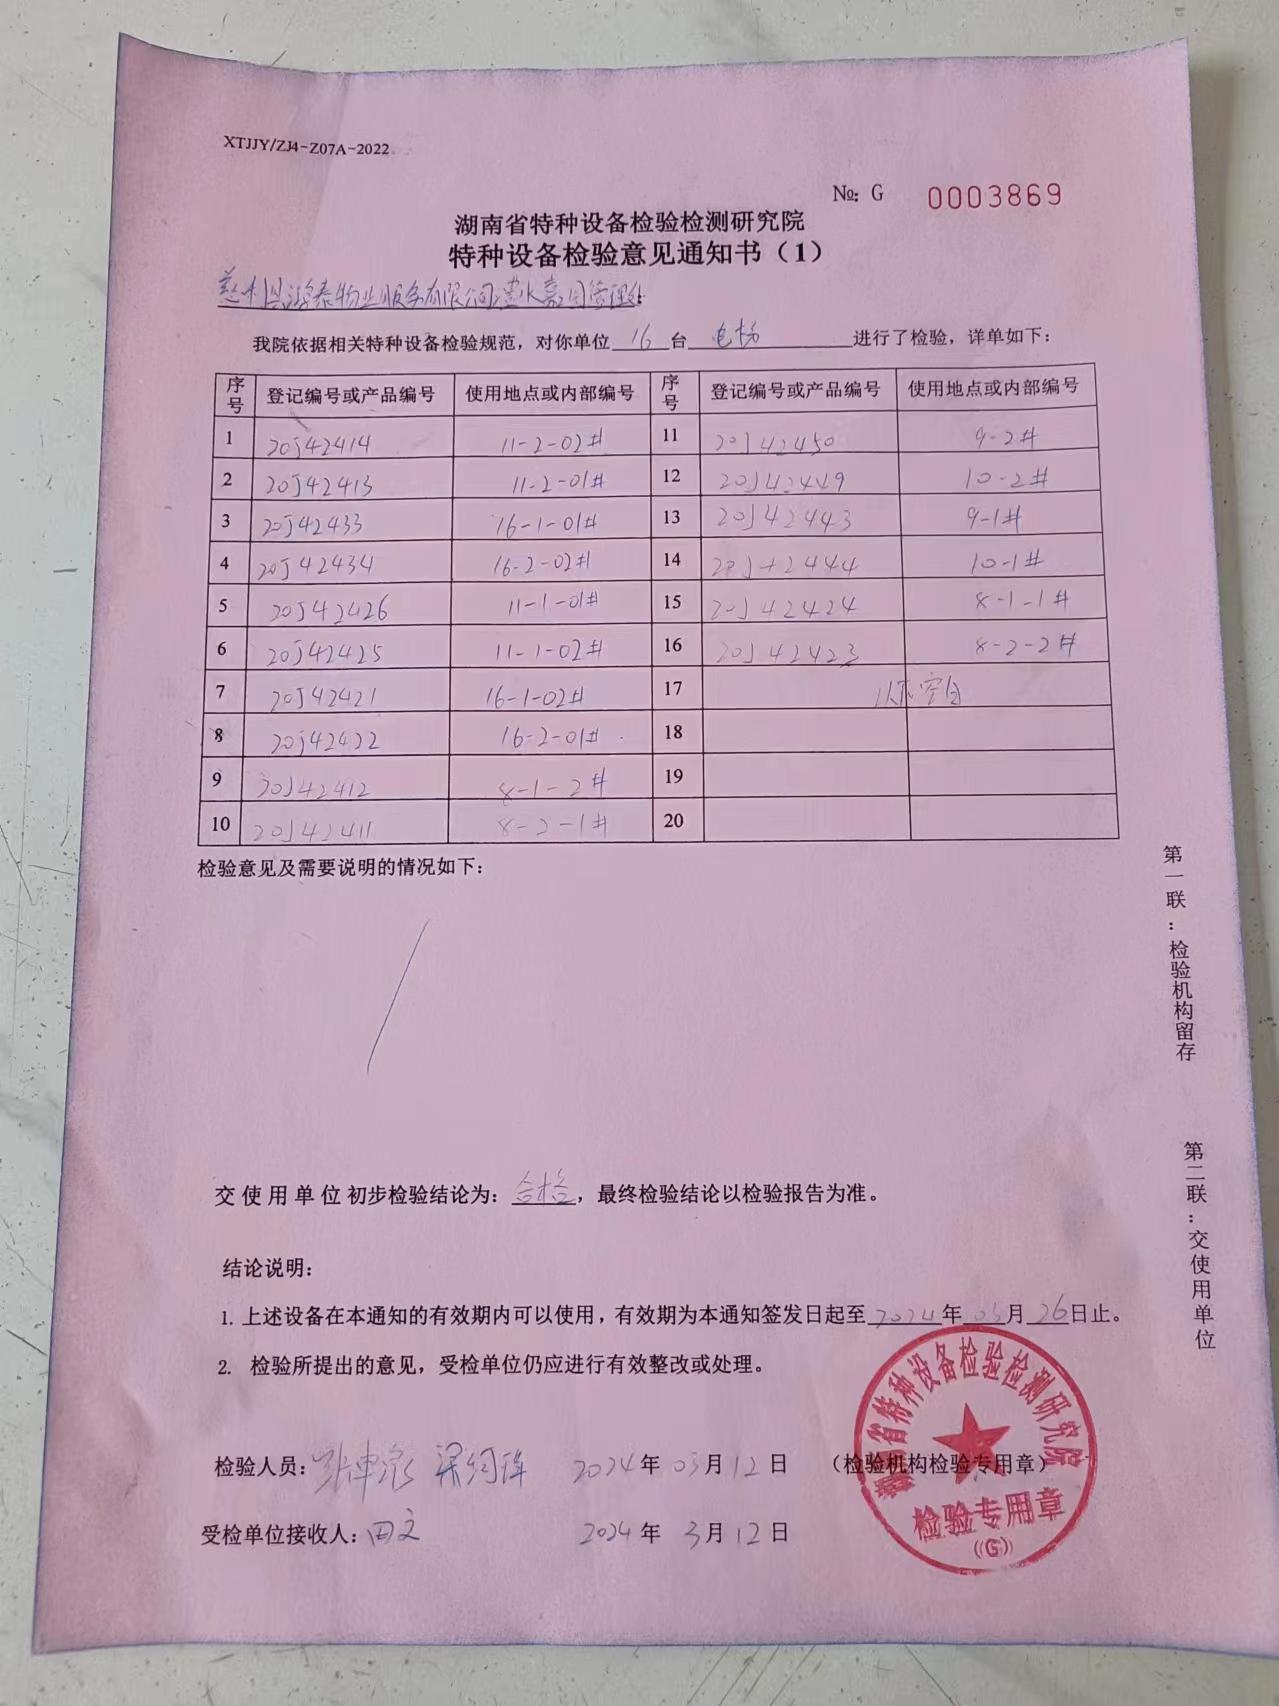 XTJJY/ZJ4-Z07A-2022
№: G 0003869
湖南省特种设备检验检测研究院
特种设备检验意见通知书（1）
慈利县鸿泰物业服务有限公司澧水嘉园管理处
我院依据相关特种设备检验规范，对你单位 16 台 电梯 进行了检验，详单如下：
序号 登记编号或产品编号 使用地点或内部编号 序号 登记编号或产品编号 使用地点或内部编号
1 20J42414 11-2-02# 11 20J42450 9-2#
2 20J42413 11-2-01# 12 20J42449 10-2#
3 20J42433 16-1-01# 13 20J42443 9-1#
4 20J42434 16-2-02# 14 20J42444 10-1#
5 20J42426 11-1-01# 15 20J42424 8-1-1#
6 20J42425 11-1-02# 16 20J42423 8-2-2#
7 20J42421 16-1-02# 17 以下空白
8 20J42422 16-2-01# 18
9 20J42412 8-1-2# 19
10 20J42411 8-2-1# 20
检验意见及需要说明的情况如下：
交使用单位初步检验结论为：合格，最终检验结论以检验报告为准。
结论说明：
1. 上述设备在本通知的有效期内可以使用，有效期为本通知签发日起至 2024 年 03 月 26 日止。
2. 检验所提出的意见，受检单位仍应进行有效整改或处理。
检验人员： 2024 年 03 月 12 日 （检验机构检验专用章）
受检单位接收人：田文 2024 年 3 月 12 日
湖南省特种设备检验检测研究院
检验专用章
(G)
第一联：检验机构留存
第二联：交使用单位